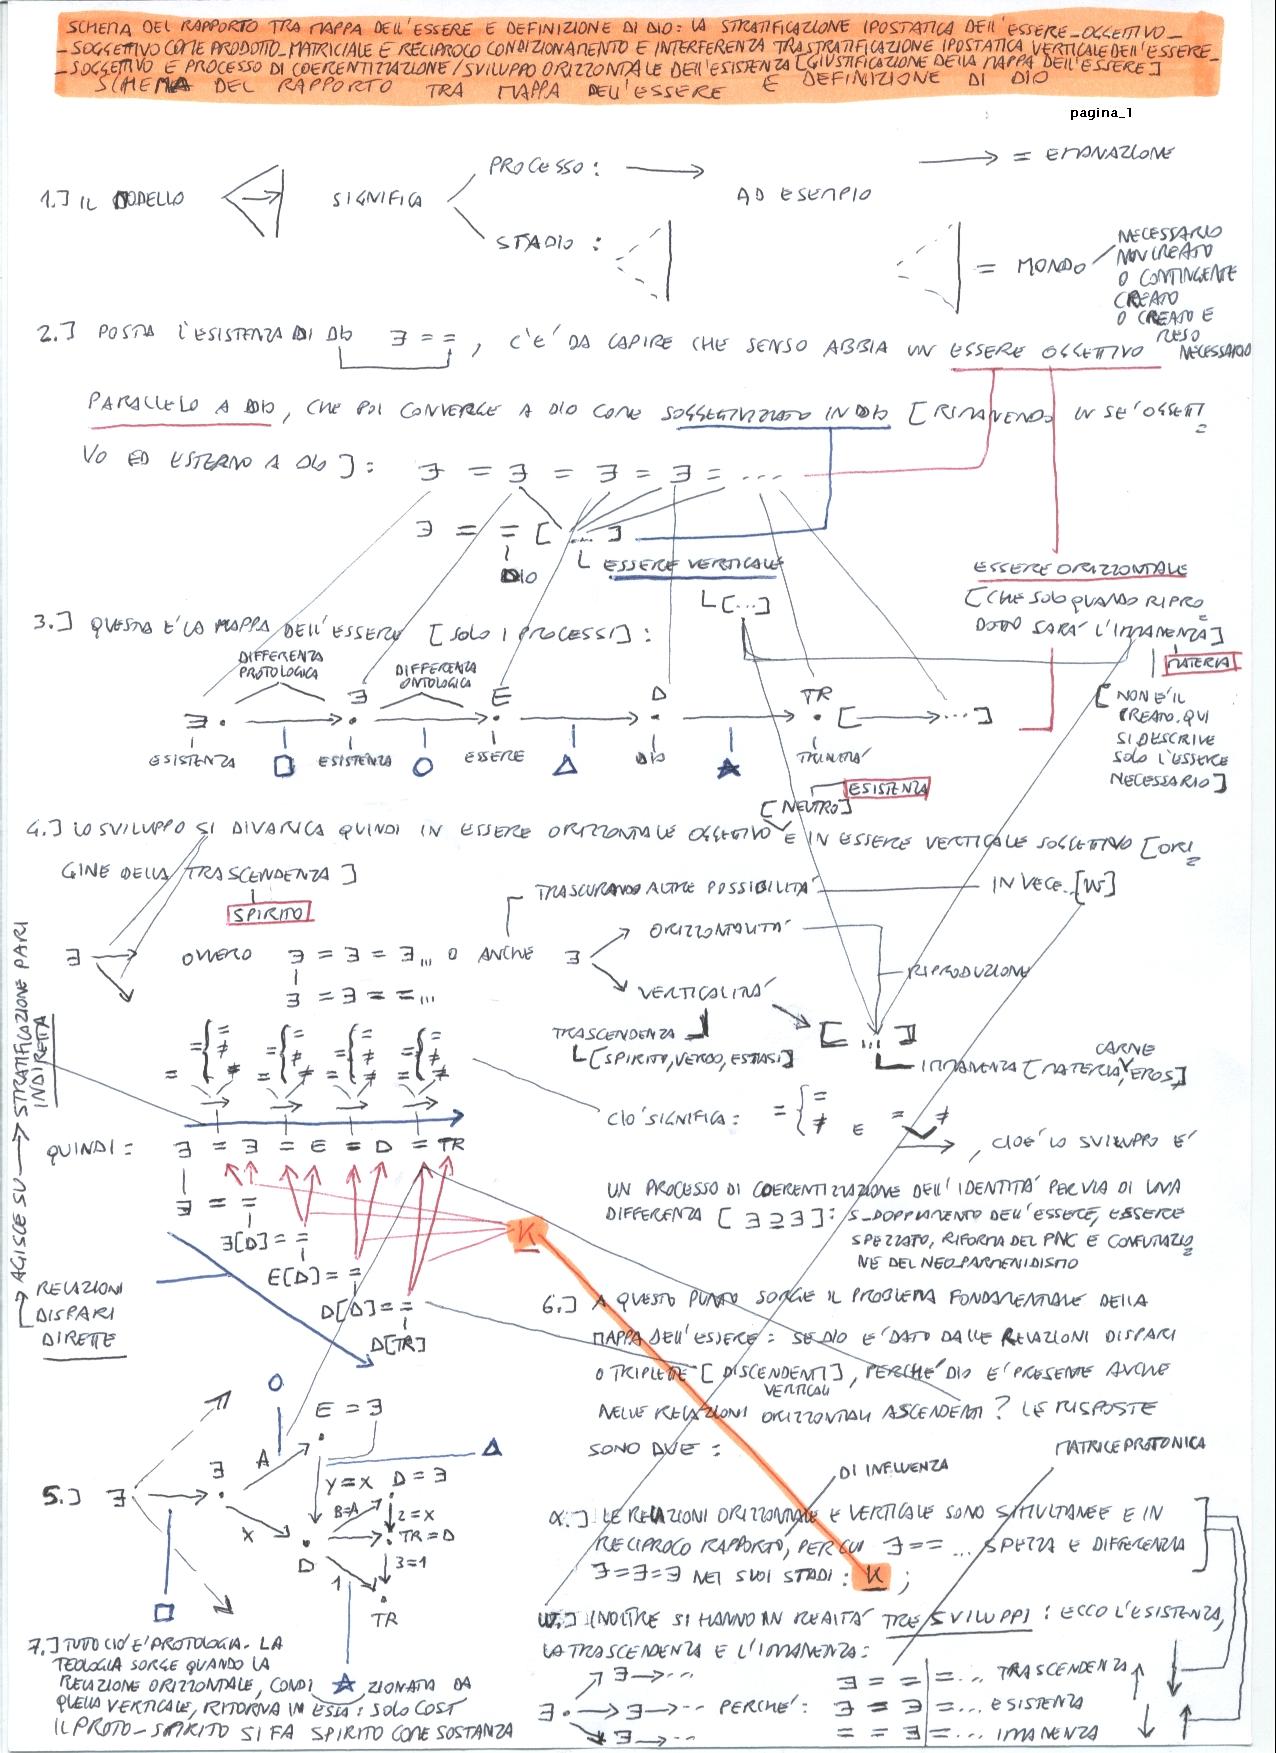 SCHEMA DEL RAPPORTO TRA MAPPA DELL'ESSERE E DEFINIZIONE DI DIO: LA STRATIFICAZIONE IPOSTATICA DELL'ESSERE_OGGETTIVO_
_SOGGETTIVO COME PRODOTTO_MATRICIALE E RECIPROCO CONDIZIONAMENTO E INTERFERENZA TRA STRATIFICAZIONE IPOSTATICA VERTICALE DELL'ESSERE_
_SOGGETTIVO E PROCESSO DI COERENTIZZAZIONE/SVILUPPO ORIZZONTALE DELL'ESISTENZA [GIUSTIFICAZIONE DELLA MAPPA DELL'ESSERE]
SCHEMA DEL RAPPORTO TRA MAPPA DELL'ESSERE E DEFINIZIONE DI DIO
pagina_1
1.] IL MODELLO SIGNIFICA
PROCESSO: →
STADIO :
AD ESEMPIO
→ = EMANAZIONE
= MONDO
NECESSARIO
NON CREATO
O CONTINGENTE
CREATO
O CREATO E
RESO
NECESSARIO
2.] POSTA L'ESISTENZA DI DIO ∃ = = , C'E' DA CAPIRE CHE SENSO ABBIA UN ESSERE OGGETTIVO
PARALLELO A DIO, CHE POI CONVERGE A DIO COME SOGGETTIVIZZATO IN DIO [RIMANENDO IN SE' OGGETTI=
VO ED ESTERNO A DIO]: ∃ = ∃ = ∃ = ∃ = ...
∃ = = [ ... ]
DIO
ESSERE VERTICALE
[...]
ESSERE ORIZZONTALE
[CHE SOLO QUANDO RIPRO=
DOTTO SARA' L'IMMANENZA]
MATERIA
[NON E' IL
CREATO. QUI
SI DESCRIVE
SOLO L'ESSERE
NECESSARIO]
3.] QUESTA E' LA MAPPA DELL'ESSERE [SOLO I PROCESSI]:
DIFFERENZA
PROTOLOGICA
DIFFERENZA
ONTOLOGICA
∃ . → ∃ . → E . → D . → TR . [→ ...]
ESISTENZA □ ESISTENZA ○ ESSERE △ DIO ★ TRINITA'
[NEUTRO] ESISTENZA
4.] LO SVILUPPO SI DIVARICA QUINDI IN ESSERE ORIZZONTALE OGGETTIVO E IN ESSERE VERTICALE SOGGETTIVO [ORI=
GINE DELLA TRASCENDENZA]
SPIRITO
TRASCURANDO ALTRE POSSIBILITA' INVECE [W]
∃ → OVVERO ∃ = ∃ = ∃... O ANCHE ∃
∃ = ∃ = =...
ORIZZONTALITA'
VERTICALITA'
RIPRODUZIONE
TRASCENDENZA
[SPIRITO, VERBO, ESTASI]
[ ... ]
IMMANENZA [MATERIA, CARNE, EROS]
AGISCE SU → STRATIFICAZIONE PARI
INDIRETTA
QUINDI: ∃ = ∃ = E = D = TR
∃ = =
∃[D] = =
E[D] = =
D[D] = =
D[TR]
RELAZIONI
DISPARI
DIRETTE
K
CIO' SIGNIFICA: = { = ≠ E = ≠ , CIOE' LO SVILUPPO E'
UN PROCESSO DI COERENTIZZAZIONE DELL'IDENTITA' PER VIA DI UNA
DIFFERENZA [∃ ⊇ ∃]: S_DOPPIAMENTO DELL'ESSERE, ESSERE
SPEZZATO, RIFORMA DEL PNC E CONFUTAZIO=
NE DEL NEO_PARMENIDISMO
6.] A QUESTO PUNTO SORGE IL PROBLEMA FONDAMENTALE DELLA
MAPPA DELL'ESSERE: SE DIO E' DATO DALLE RELAZIONI DISPARI
O TRIPLETTE [DISCENDENTI], PERCHE' DIO E' PRESENTE ANCHE
VERTICALI
NELLE RELAZIONI ORIZZONTALI ASCENDENTI? LE RISPOSTE
SONO DUE:
DI INFLUENZA
MATRICE PROTONICA
α.] LE RELAZIONI ORIZZONTALE E VERTICALE SONO SIMULTANEE E IN
RECIPROCO RAPPORTO, PER CUI ∃ = = ... SPEZZA E DIFFERENZIA
∃ = ∃ = ∃ NEI SUOI STADI: K ;
W.] INOLTRE SI HANNO IN REALTA' TRE SVILUPPI: ECCO L'ESISTENZA,
LA TRASCENDENZA E L'IMMANENZA:
∃ → ...
∃ . → ∃ → ... PERCHE':
∃ → ...
∃ = = | = ... TRASCENDENZA ↑
∃ = ∃ | = ... ESISTENZA
= = ∃ | = ... IMMANENZA ↓
5.] ∃ ∃ A E = ∃
X D Y=X D = ∃
B=A 2=X
TR = D
1 3=1
TR
7.] TUTTO CIO' E' PROTOLOGIA. LA
TEOLOGIA SORGE QUANDO LA
RELAZIONE ORIZZONTALE, CONDI ★ ZIONATA DA
QUELLA VERTICALE, RITORNA IN ESSA: SOLO COSI'
IL PROTO_SPIRITO SI FA SPIRITO COME SOSTANZA